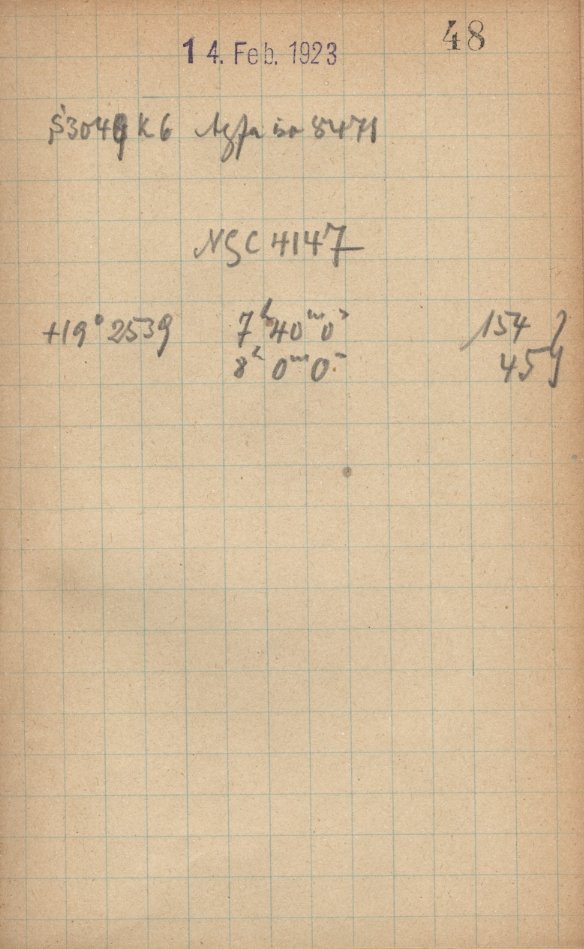 48
14. Feb. 1923
S3049 K6 Agfa iso 8471
NGC 4147
+19° 2539 7h 40m 0s 154
8h 0m 0s 45